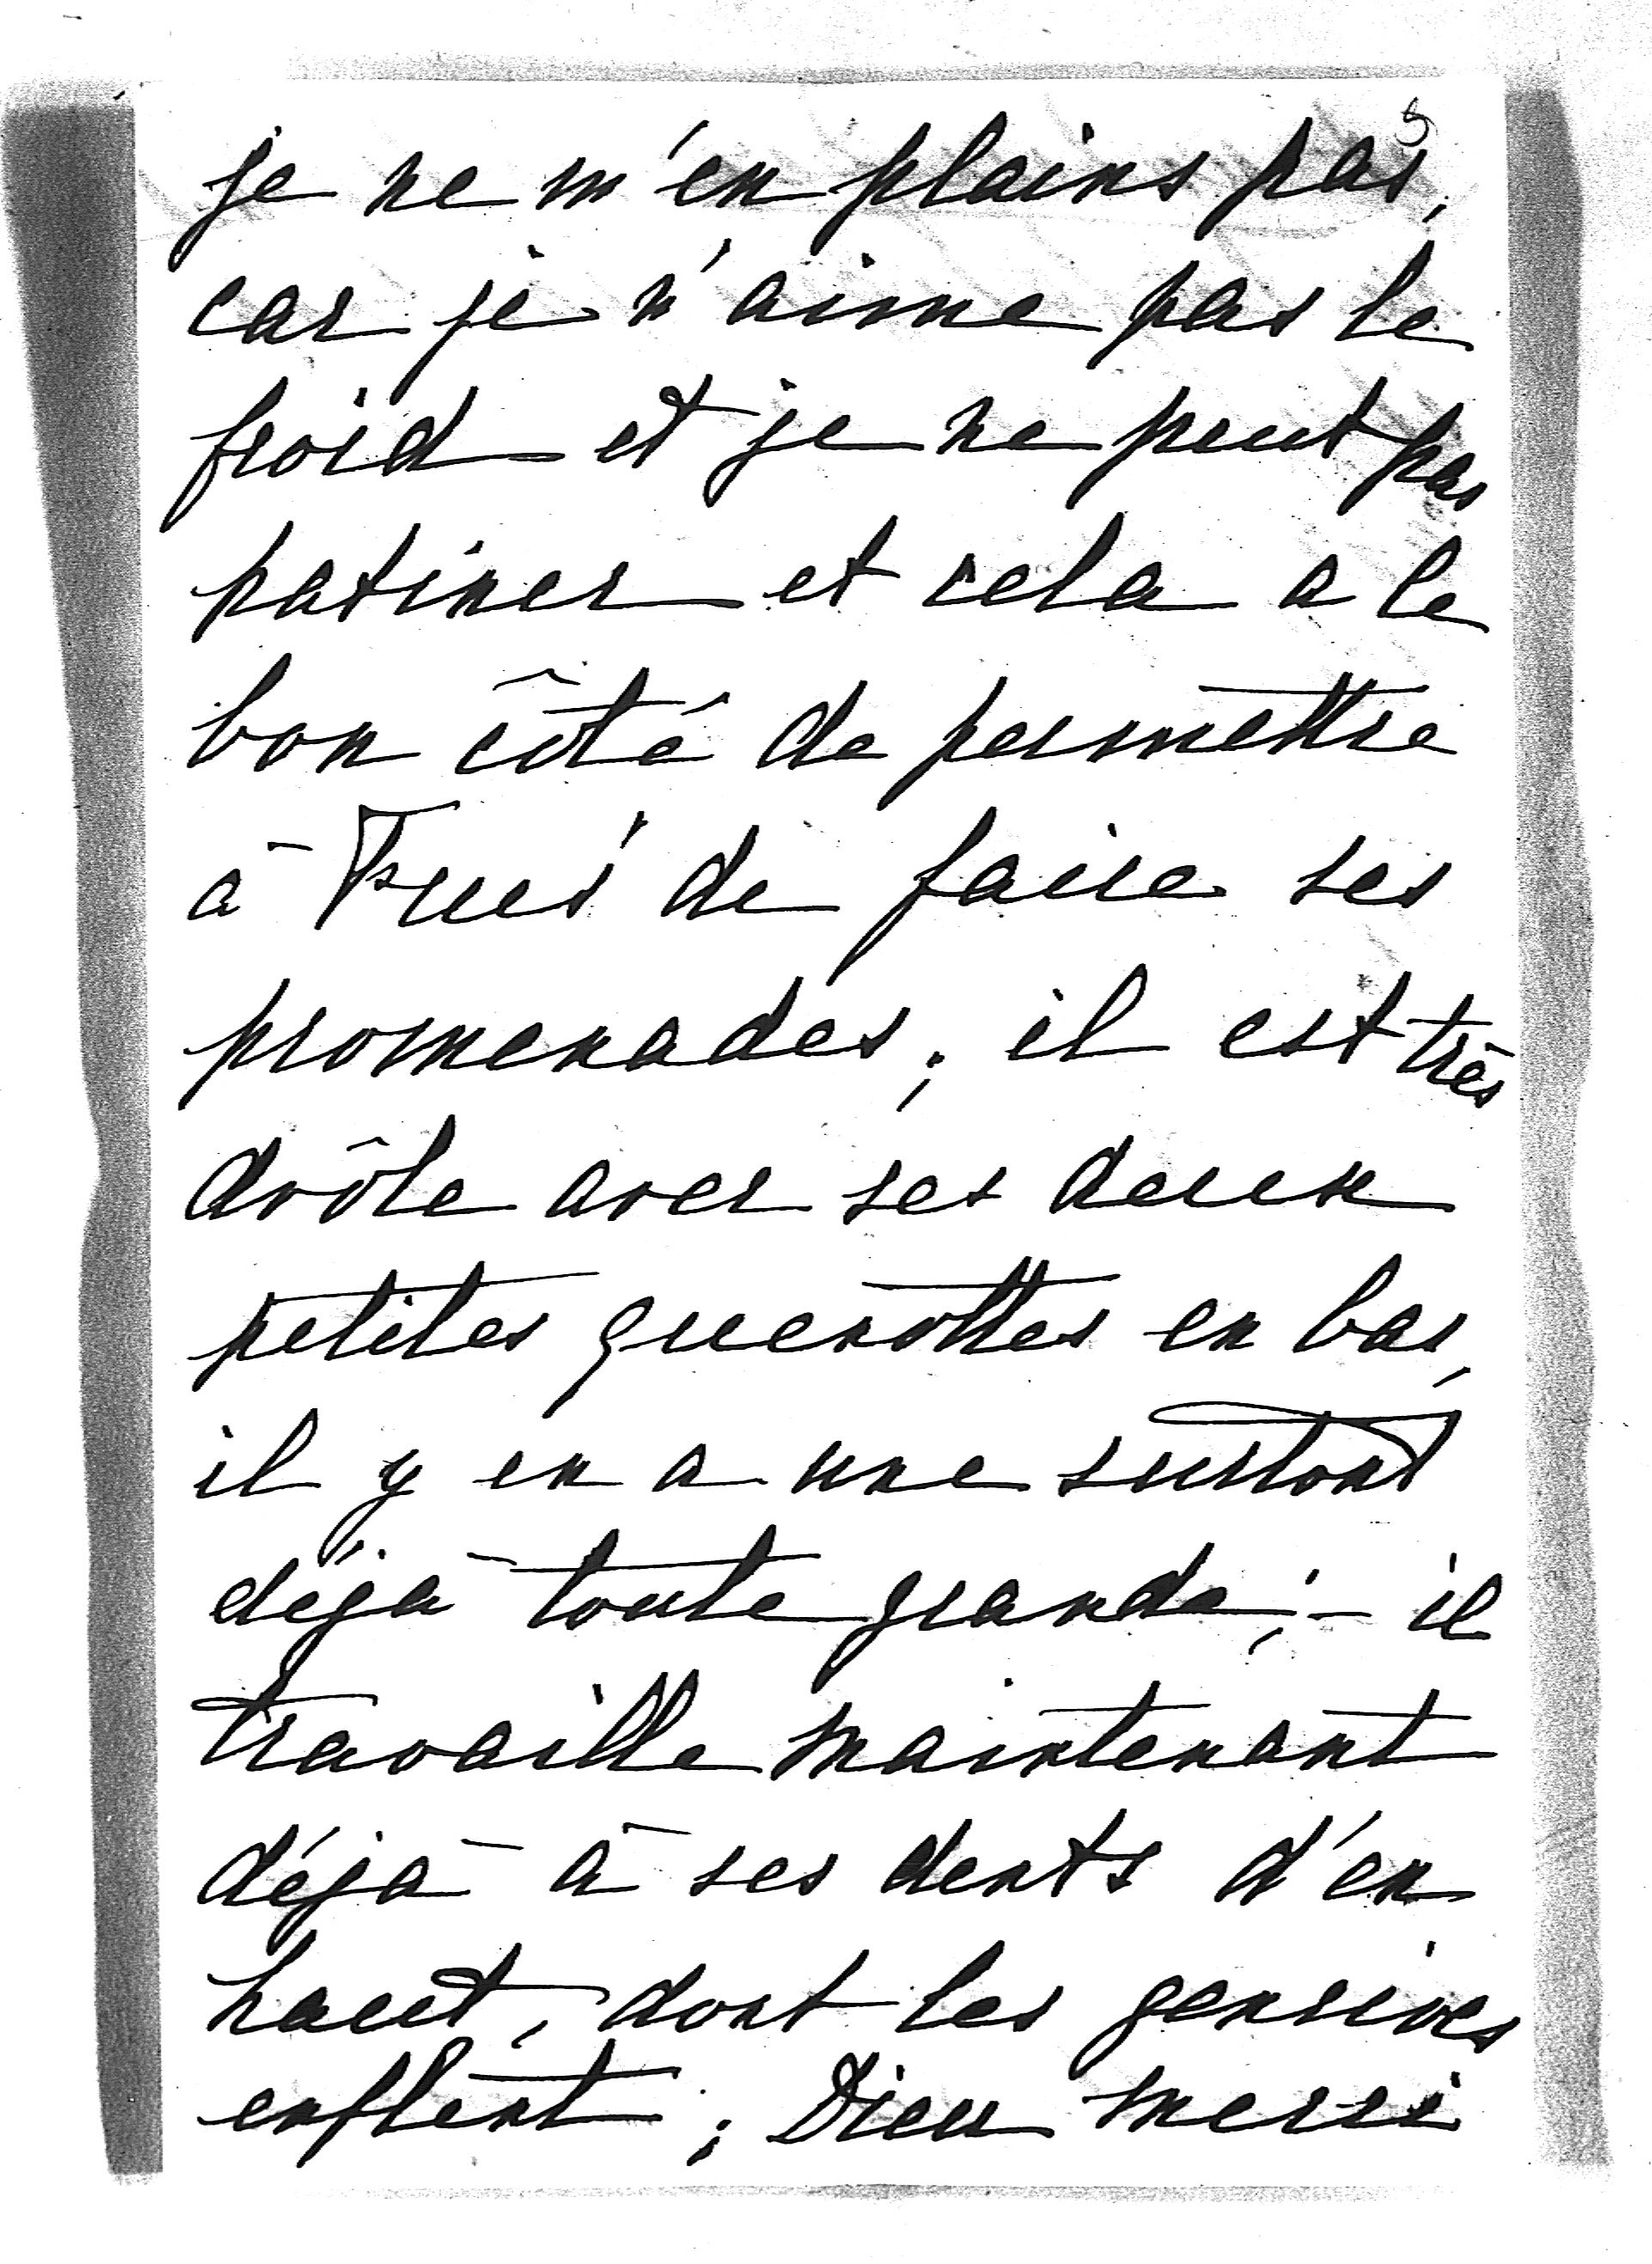 5
je ne m'en plains pas,
car je n'aime pas le
froid – et je ne peut pas
patiner et cela a le
bon côté de permettre
à de faire ses
promenades; il est très
drôle avec ses deux
petites quenottes en bas,
il y en a une surtout
déjà toute grande; – il
travaille maintenant
déjà à ses dents d'en
haut, dont les gencives
enflent; Dieu merci